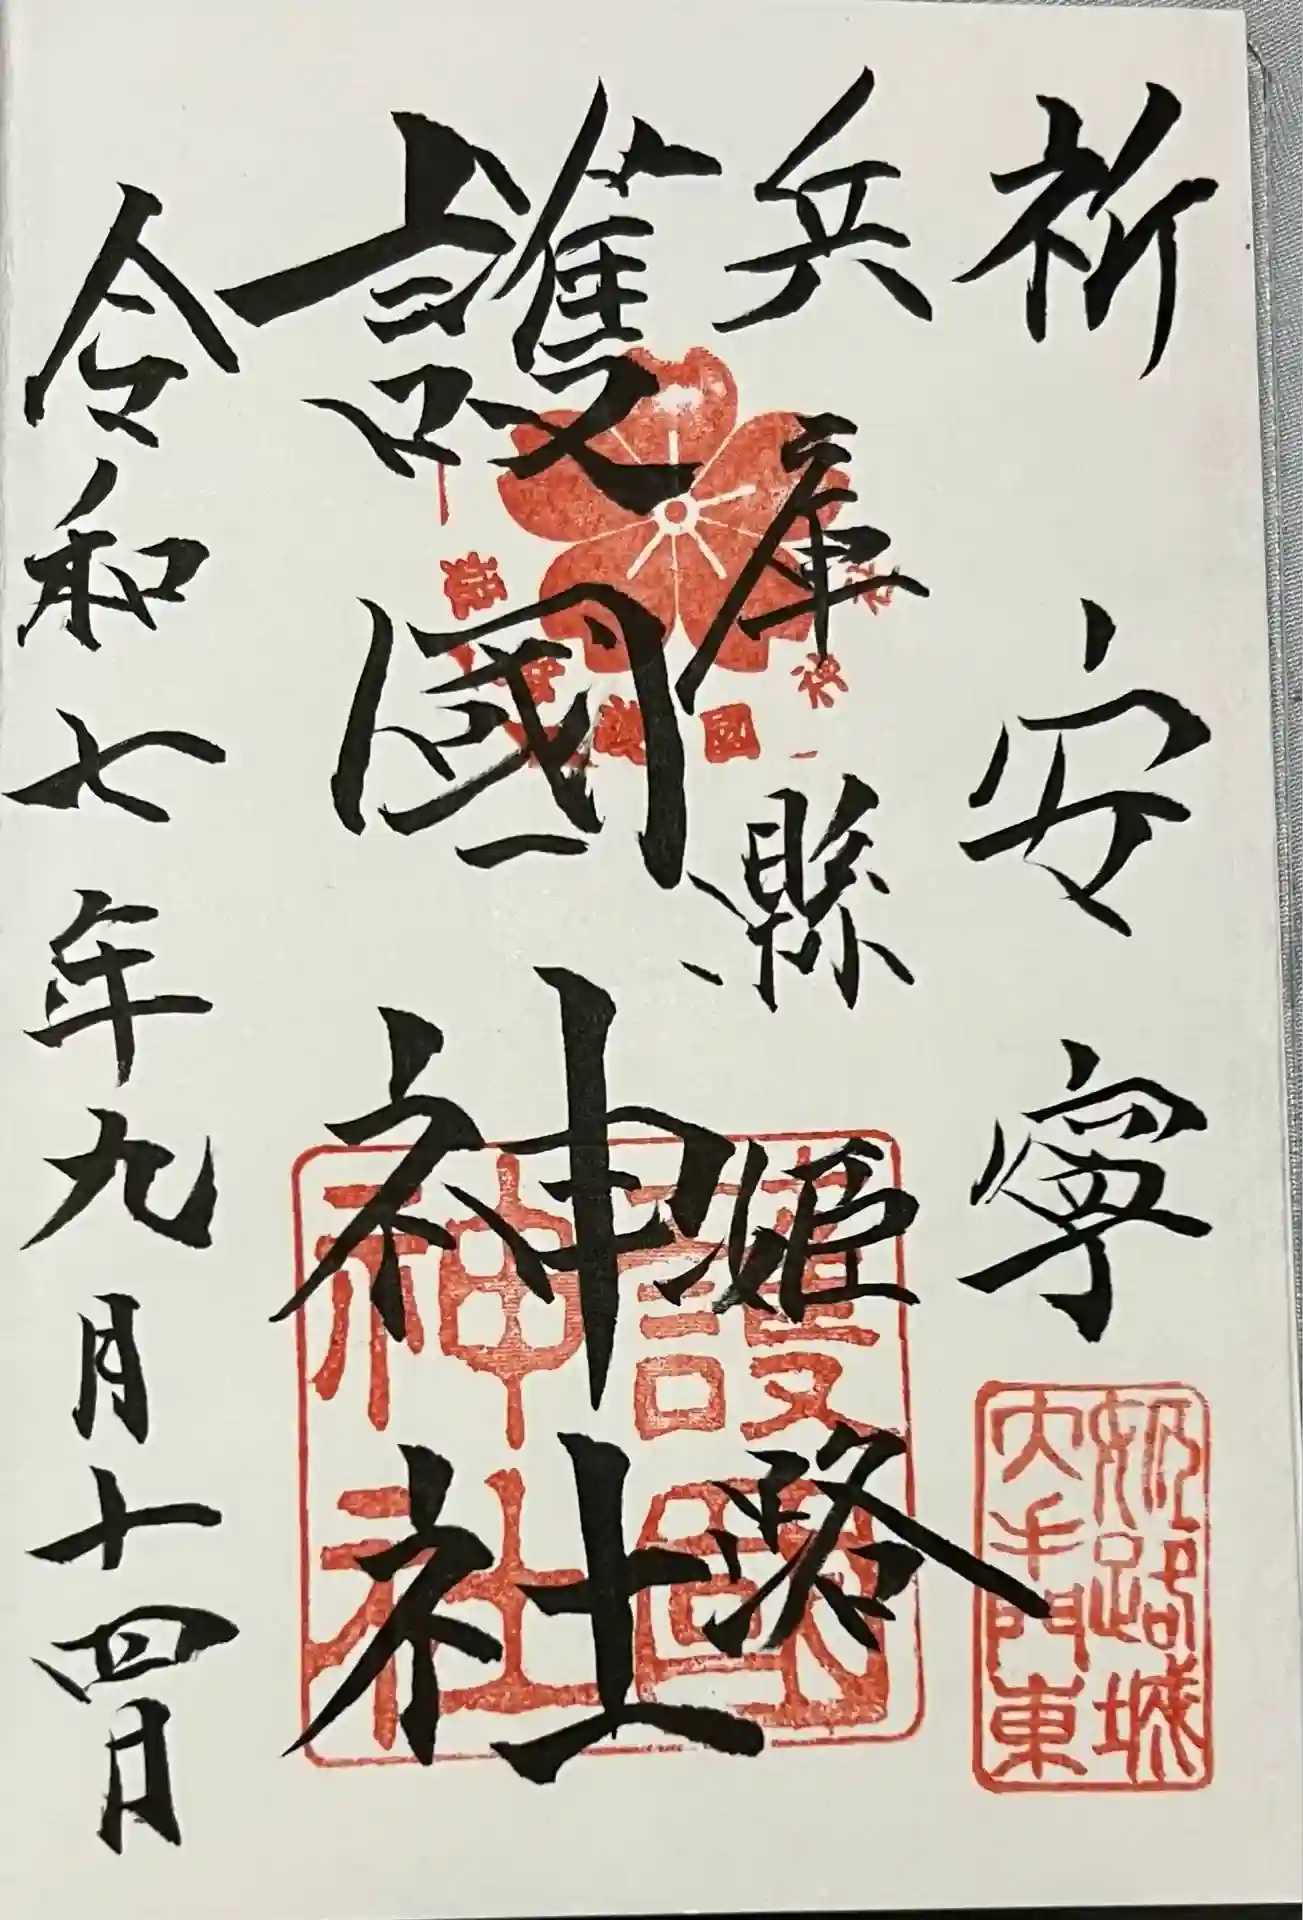 祈安寧
兵庫縣姫路
護國神社
令和七年九月十四日
姫路護國神社
護國神社
姫路城
大手門東